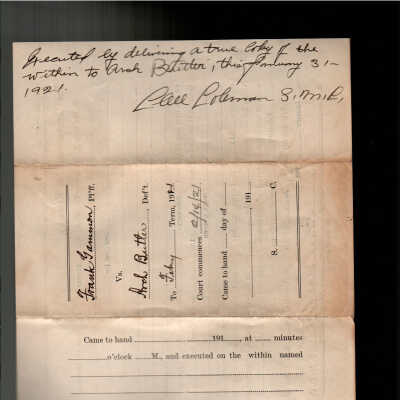 Executed by delivering a true Copy of the
within to Arch Butler, this January 31-
1921.
Coleman S.M.C.
Frank Gammon, Pl'ff.
Vs.
Arch Butler, Def't.
To Feby Term, 1921
Court commences 2/14/21
Came to hand day of
, 191
S. C.
Came to hand 191 , at minutes
o'clock M., and executed on the within named